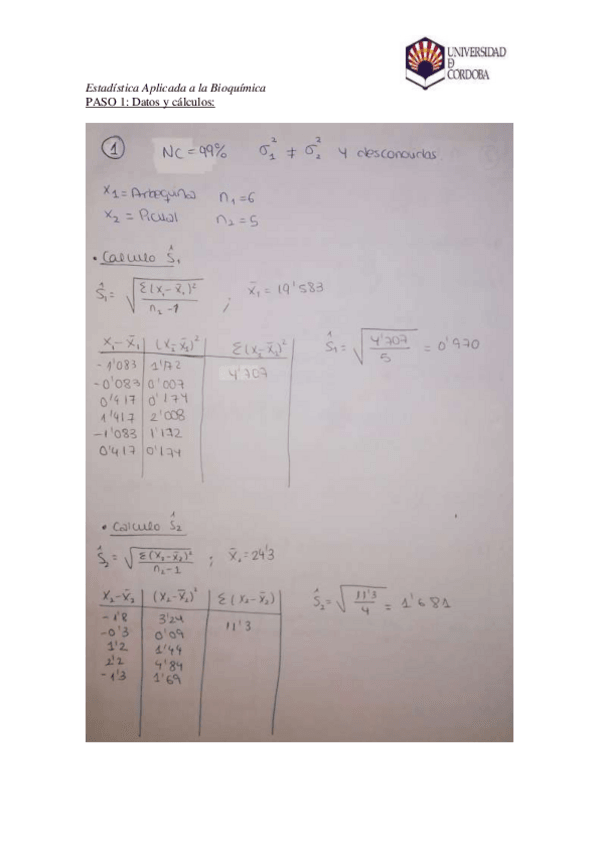 UNIVERSIDAD
D
CORDOBA
Estadística Aplicada a la Bioquímica
PASO 1: Datos y cálculos:
1 NC = 99% σ₁² ≠ σ₂² y desconocidas
x1 = Arbequina n1 = 6
x2 = Picual n2 = 5
• Calculo Ŝ1
Ŝ1 = √(Σ(x1-x̄1)²/n2-1) ; x̄1 = 19'583
x1-x̄1 (x2-x̄2)² Σ(x2-x̄2)² Ŝ1 = √(4'707/5) = 0'970
-1'083 1'172 4'707
-0'083 0'007
0'417 0'174
1'417 2'008
-1'083 1'172
0'417 0'174
• Calculo Ŝ2
Ŝ2 = √(Σ(x2-x̄2)²/n2-1) ; x̄2 = 24'3
x2-x̄2 (x2-x̄2)² Σ(x2-x̄2) Ŝ2 = √(11'3/4) = 1'681
-1'8 3'24 11'3
-0'3 0'09
1'2 1'44
2'2 4'84
-1'3 1'69